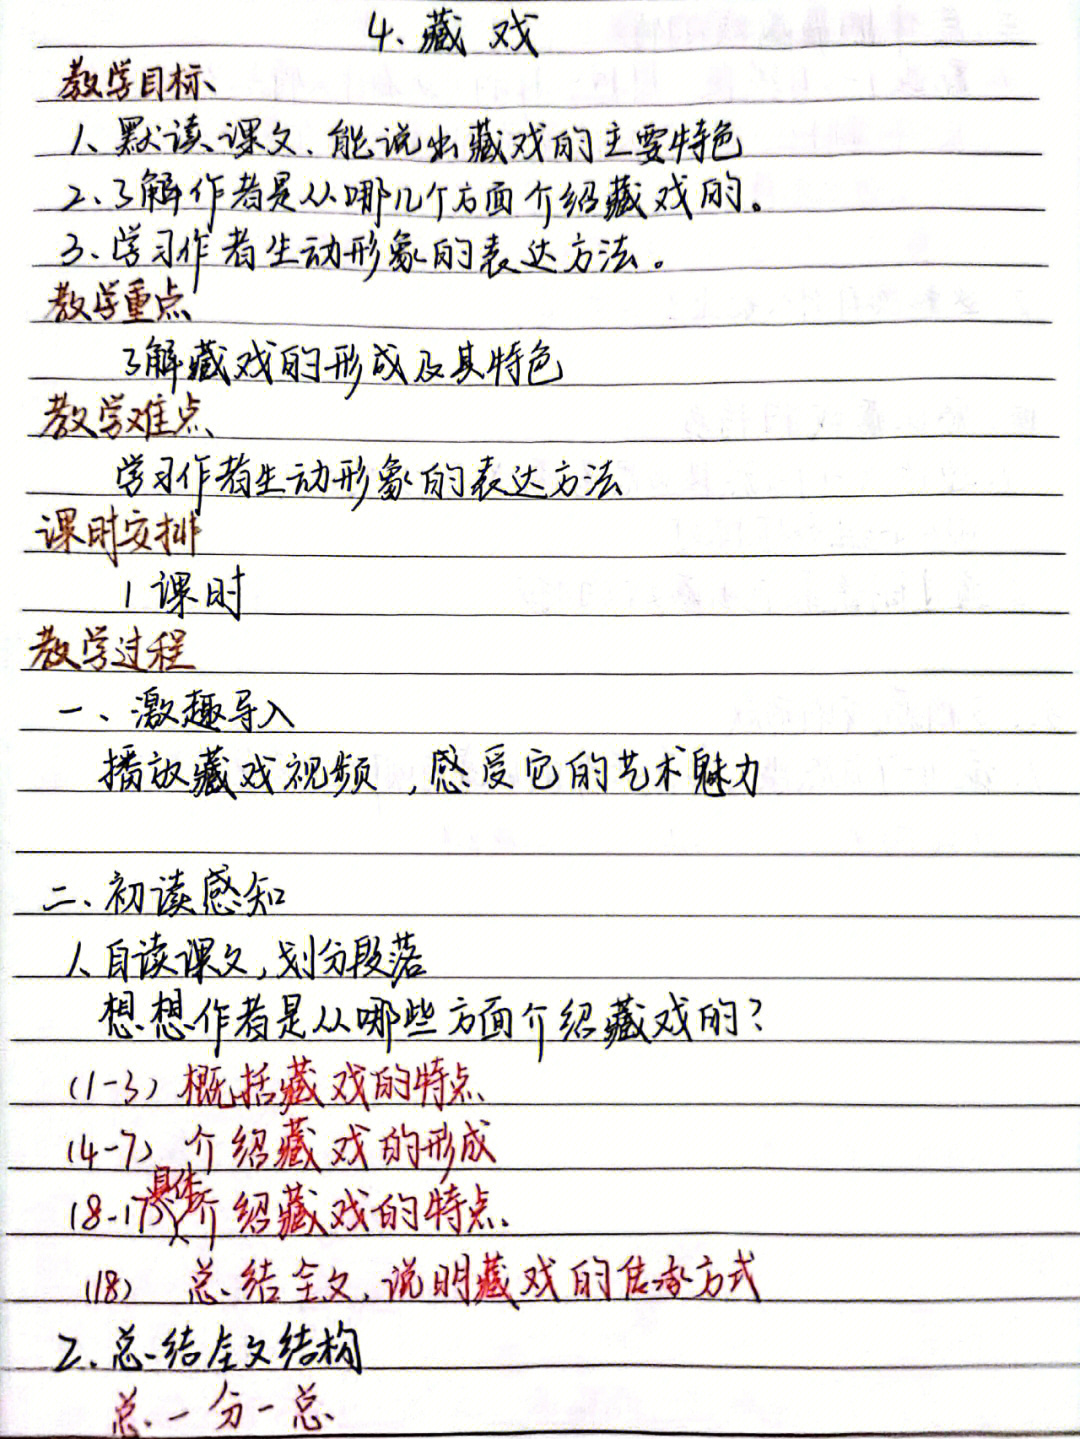 4、藏戏
教学目标
1、默读课文、能说出藏戏的主要特色
2、了解作者是从哪几个方面介绍藏戏的。
3、学习作者生动形象的表达方法。
教学重点
了解藏戏的形成及其特色
教学难点
学习作者生动形象的表达方法
课时安排
1课时
教学过程
一、激趣导入
播放藏戏视频,感受它的艺术魅力
二、初读感知
1、自读课文,划分段落
想想作者是从哪些方面介绍藏戏的?
(1-3)概括藏戏的特点
(4-7)介绍藏戏的形成
(8-17)具体介绍藏戏的特点
(18)总结全文,说明藏戏的传承方式
2、总结全文结构
总-分-总